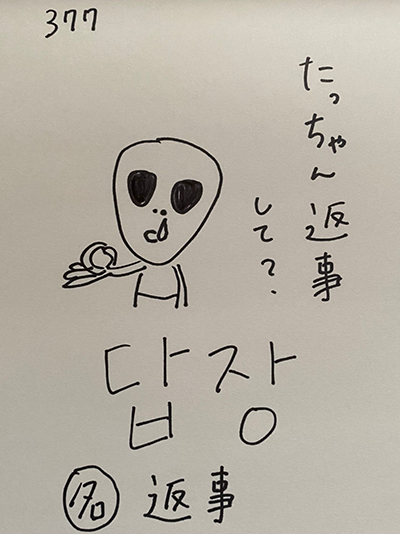 377
たっちゃん返事
して?
답장
名 返事